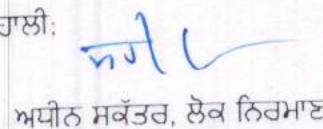 ਹਾਲੀ:
ਅਧੀਨ ਸਕੱਤਰ, ਲੋਕ ਨਿਰਮਾਣ